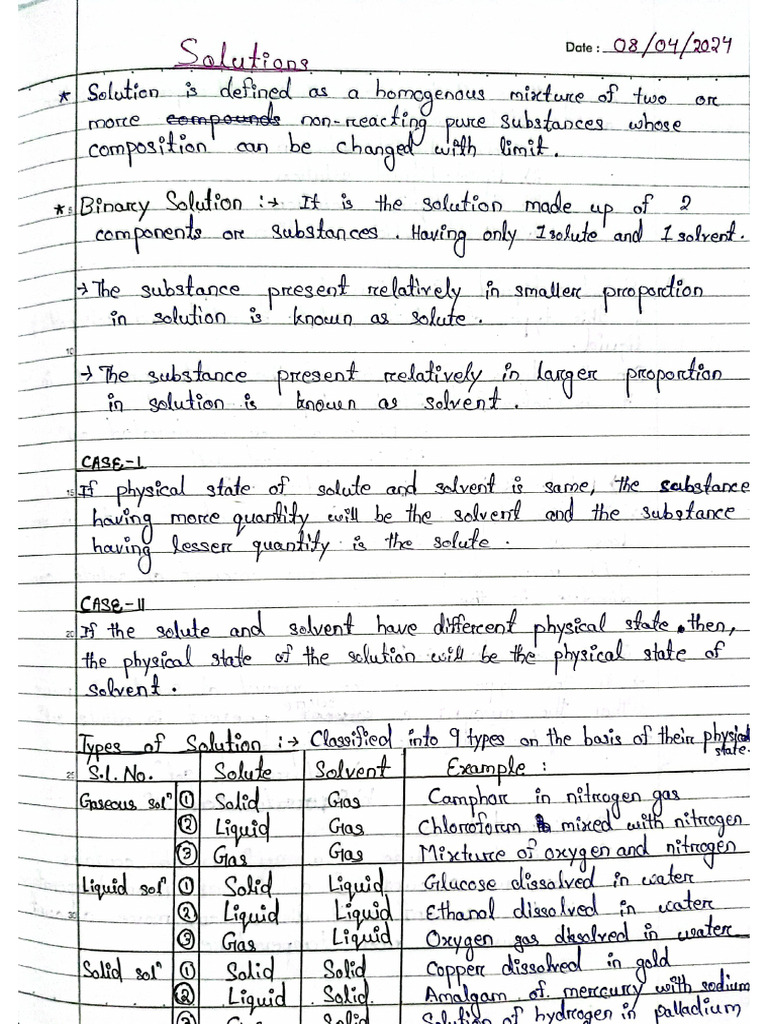 Date : 08/04/2024
Solutions
* Solution is defined as a homogenous mixture of two or
more compounds non-reacting pure substances whose
composition can be changed with limit.
* 5 Binary Solution :→ It is the solution made up of 2
components or substances. Having only 1 solute and 1 solvent.
→ The substance present relatively in smaller proportion
in solution is known as solute.
10
→ The substance present relatively in larger proportion
in solution is known as solvent.
CASE-I
15 If physical state of solute and solvent is same, the substance
having more quantity will be the solvent and the substance
having lesser quantity is the solute.
CASE-II
20 If the solute and solvent have different physical state. then,
the physical state of the solution will be the physical state of
solvent.
Types of Solution :→ Classified into 9 types on the basis of their physical
state.
25 S.l. No. Solute Solvent Example :
Gaseous solⁿ ① Solid Gas Camphor in nitrogen gas
② Liquid Gas Chloroform mixed with nitrogen
③ Gas Gas Mixture of oxygen and nitrogen
Liquid solⁿ ① Solid Liquid Glucose dissolved in water
30 ② Liquid Liquid Ethanol dissolved in water
③ Gas Liquid Oxygen gas dissolved in water
Solid solⁿ ① Solid Solid Copper dissolved in gold
② Liquid Solid Amalgam of mercury with sodium
③ Gas Solid Solution of hydrogen in palladium